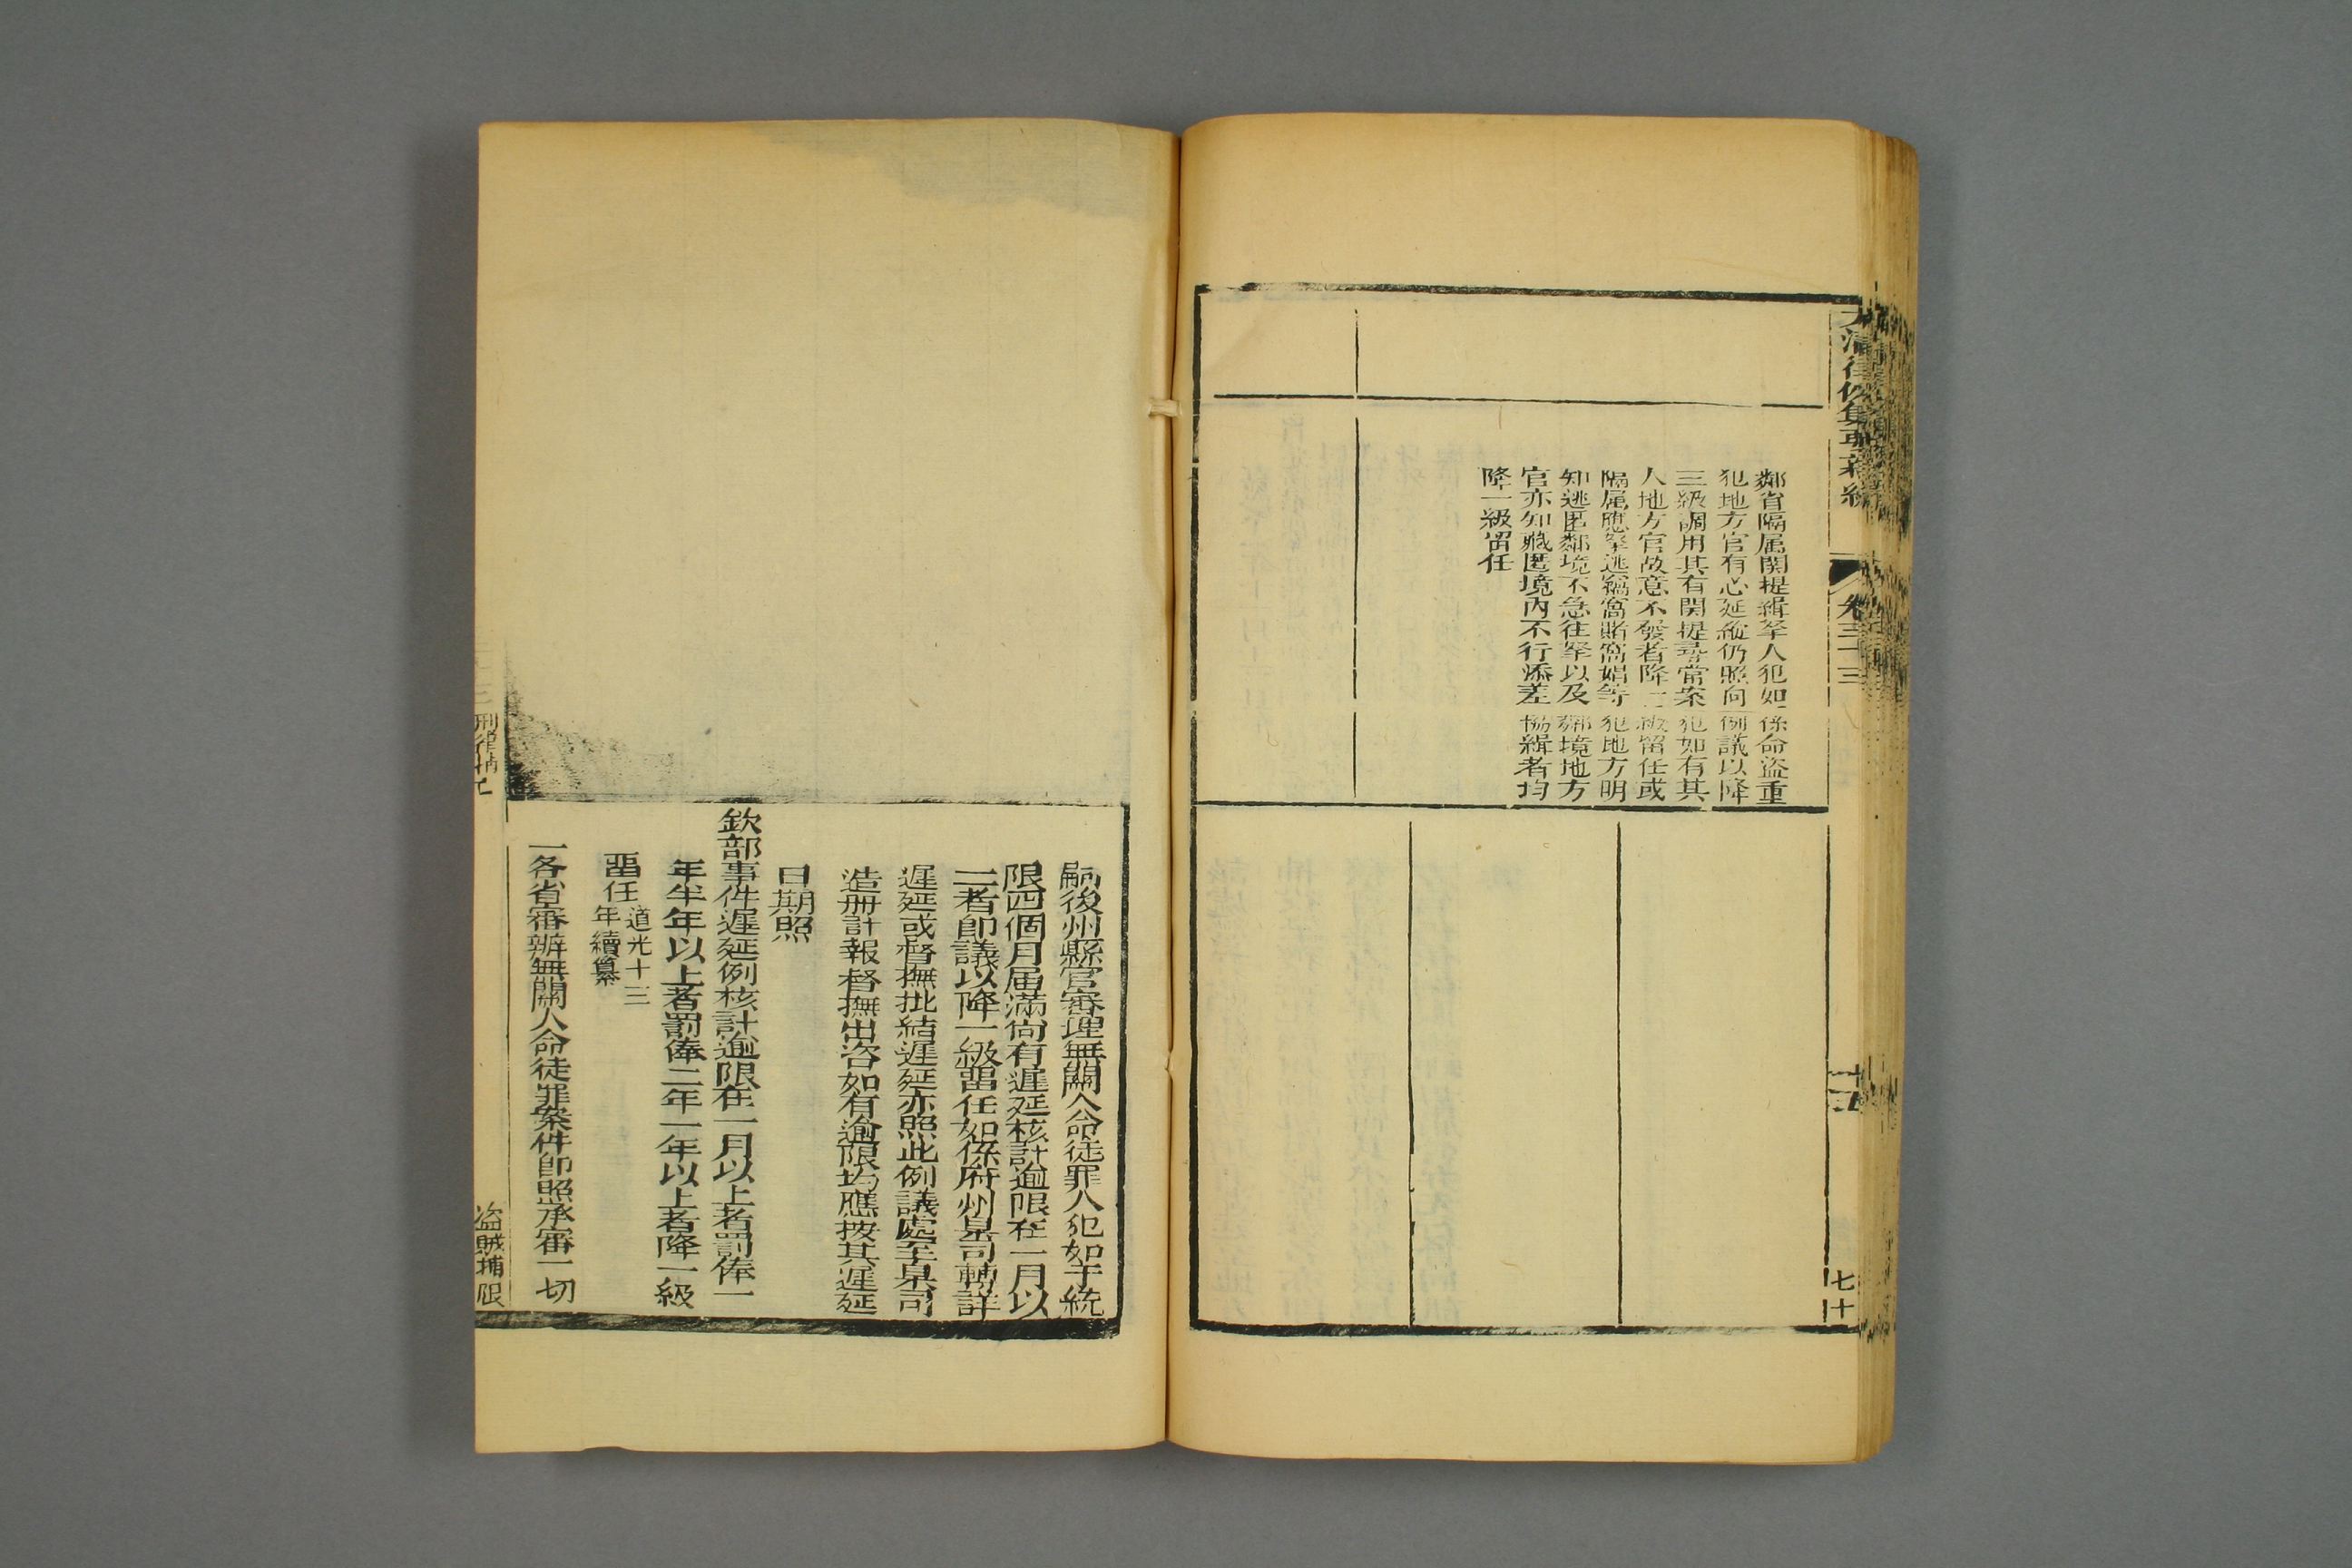 大清律例集要新編
卷三十三
十五
七十
鄰省隔属関提緝拏人犯如係命盜重
犯地方官有心延縱仍照向例議以降
三級調用其有関提尋常案犯如有其
人地方官故意不發者降一級留任或
隔属應拏逃竊窩賭窩娼等犯地方明
知逃匿鄰境不急往拏以及鄰境地方
官亦知藏匿境內不行添差協緝者均
降一級留任
嗣後州縣官審理無關人命徒罪人犯如于統
限四個月届滿尙有遲延核計逾限在一月以
上者卽議以降一級畱任如係府州臬司轉詳
遲延或督撫批結遲延亦照此例議處至臬司
造册計報督撫出咨如有逾限均應按其遲延
日期照
欽部事件遲延例核計逾限在一月以上者罰俸一
年半年以上者罰俸二年一年以上者降一級
畱任道光十三
年續纂
一各省審辦無關人命徒罪案件卽照承審一切
刑律捕亡
盜賊捕限